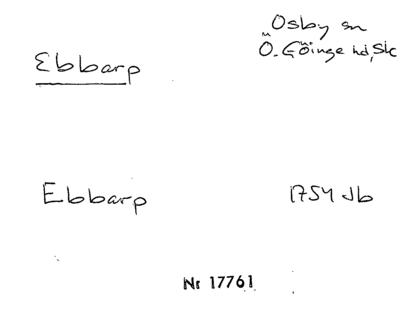 Osby sn
Ö. Göinge hd, Sk
Ebbarp
Ebbarp 1754 Jb
Nr 17761